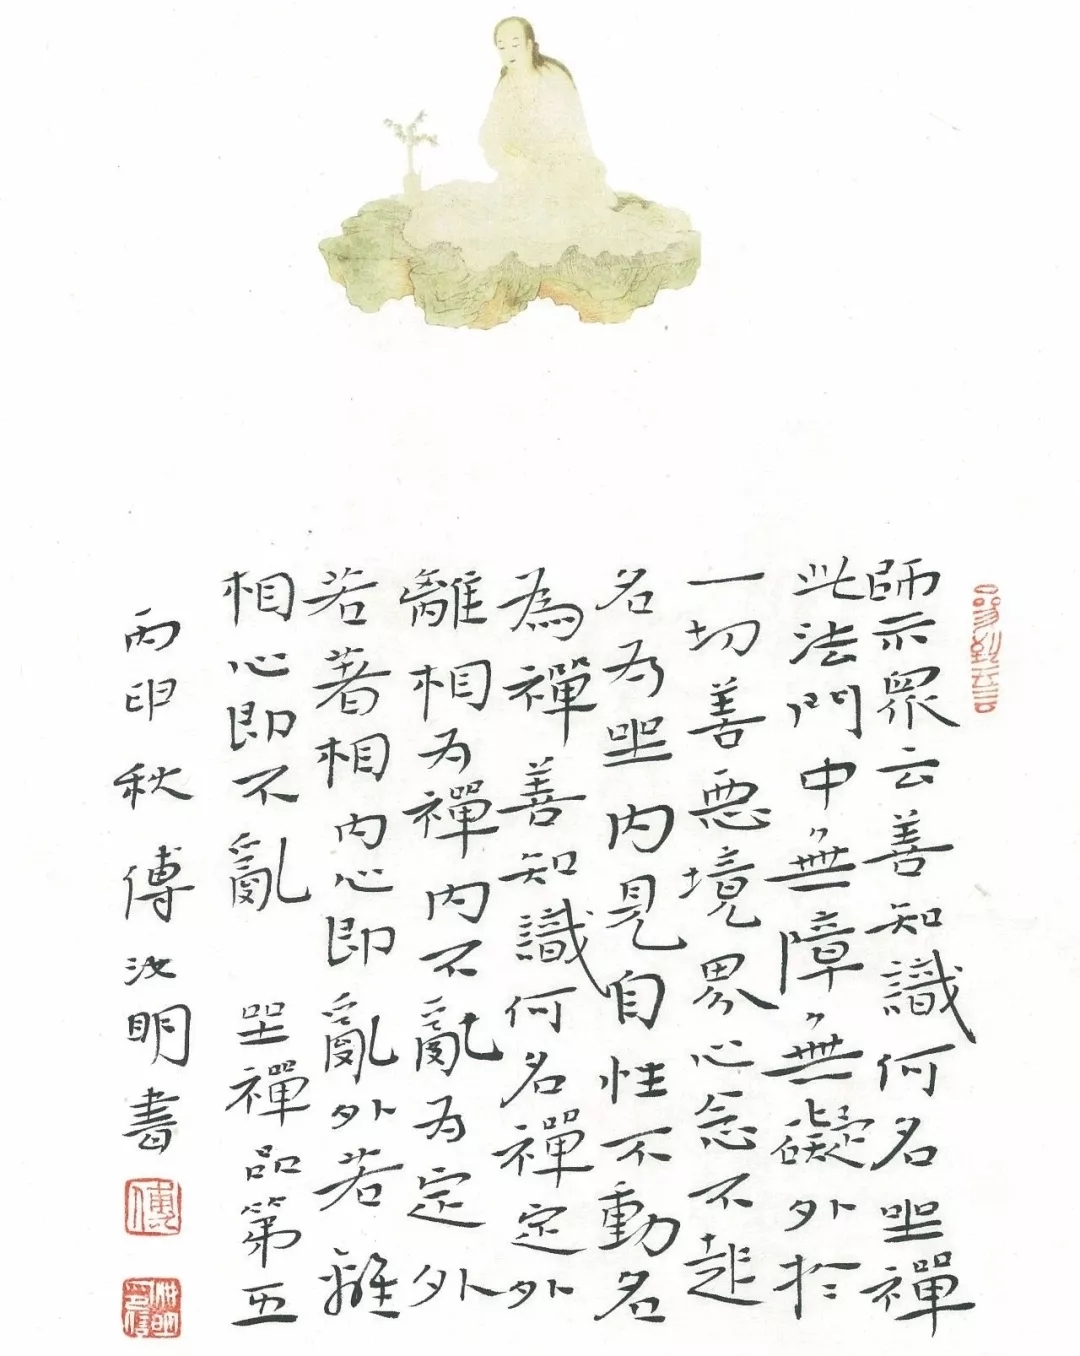 師示眾云善知識何名坐禪
此法門中無障無礙外於
一切善惡境界心念不起
名为坐內見自性不動名
為禪善知識何名禪定外
離相为禪內不亂为定外
若著相內心即亂外若離
相心即不亂 坐禪品第五
丙申秋傅汝明書
傅